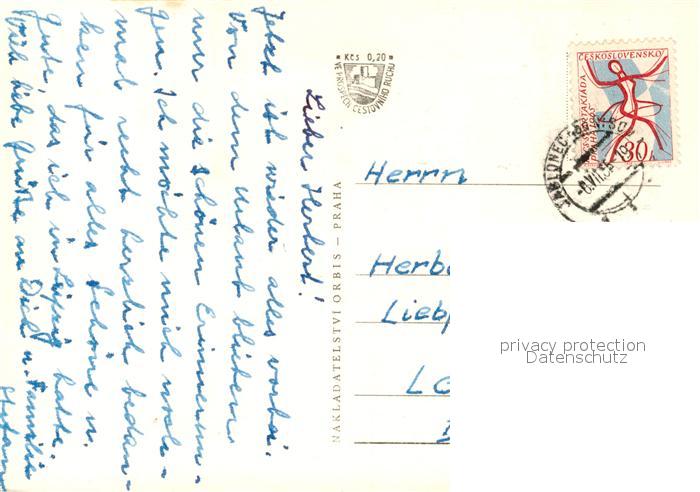 Lieber Herbert!
Jetzt ist wieder alles vorbei.
Von dem Urlaub bleiben
nur die schönen Erinnerun-
gen. Ich möchte mich noch-
mal recht herzlich bedan-
ken für alles Schöne u.
Gute, das ich in Leipzig hatte.
Viele liebe Grüße an Dich u. Familie
NAKLADATELSTVÍ ORBIS — PRAHA
Kčs 0,20
VE PROSPĚCH CESTOVNÍHO RUCHU
ČESKOSLOVENSKO
30
JABLONEC
Herrn
Herb
Lieb
privacy protection
Datenschutz